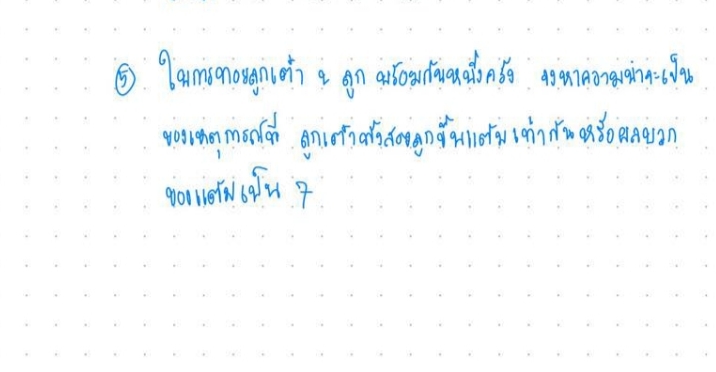 ⑤ ในการทอยลูกเต๋า 2 ลูก พร้อมกันหนึ่งครั้ง จงหาความน่าจะเป็น
ของเหตุการณ์ที่ ลูกเต๋าทั้งสองลูกขึ้นแต้มเท่ากันหรือผลบวก
ของแต้มเป็น 7